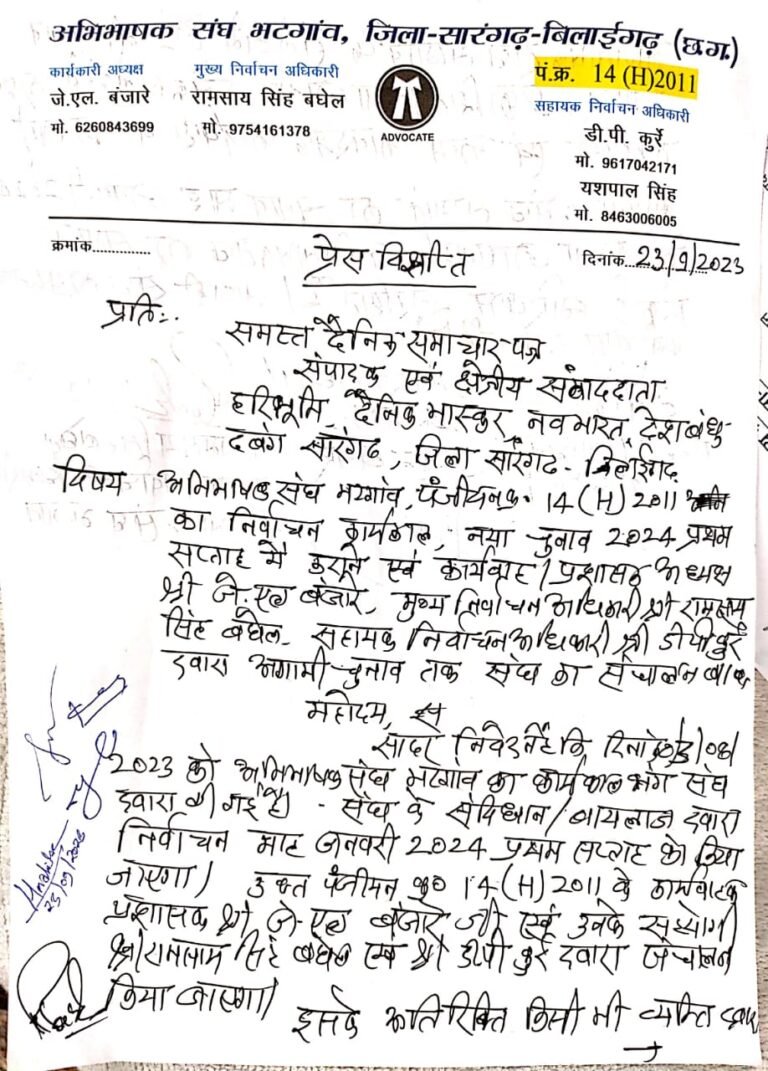 अभिभाषक संघ भटगांव, जिला-सारंगढ़-बिलाईगढ़ (छ.ग.)
कार्यकारी अध्यक्ष
जे.एल. बंजारे
मो. 6260843699
मुख्य निर्वाचन अधिकारी
रामसाय सिंह बघेल
मो. 9754161378
ADVOCATE
पं.क्र. 14 (H)2011
सहायक निर्वाचन अधिकारी
डी.पी. कुर्रे
मो. 9617042171
यशपाल सिंह
मो. 8463006005
क्रमांक...............
दिनांक...23/9/2023
प्रेस विज्ञप्ति
प्रति:.
समस्त दैनिक समाचार पत्र
संपादक एवं क्षेत्रीय संवाददाता
हरिभूमि, दैनिक भास्कर, नवभारत, देशबंधु-
दबंग सारंगढ, जिला सारंगढ - बिलाईगढ
विषय अभिभाषक संघ भटगांव, पंजीयन क्र. 14 (H) 2011
का निर्वाचन कार्यकाल, नया चुनाव 2024 प्रथम
सप्ताह में कराने एवं कार्यवाह / प्रशासक अध्यक्ष
श्री जे. एल बंजारे, मुख्य निर्वाचन अधिकारी श्री रामसाय
सिंह बघेल - सहायक निर्वाचन अधिकारी श्री डीपी कुर्रे
द्वारा अगामी चुनाव तक संघ का संचालन
महोदय,
सादर निवेदन है कि
2023 को अभिभाषक संघ भटगांव का कार्यकाल भंग संघ
द्वारा की गई है - संघ के संविधान / बायलाज द्वारा
निर्वाचन माह जनवरी 2024 प्रथम सप्ताह को किया
जाएगा / उक्त पंजीयन क्र0 14 (H) 2011 के कार्यवाहक
प्रशासक श्री जे. एल बंजारे जी एवं उनके सहयोगी
श्री रामसाय सिंह बघेल एवं श्री डी.पी कुर्रे द्वारा संचालन
किया जाएगा /
इसके अतिरिक्त किसी भी व्यक्ति द्वारा
23/09/2023